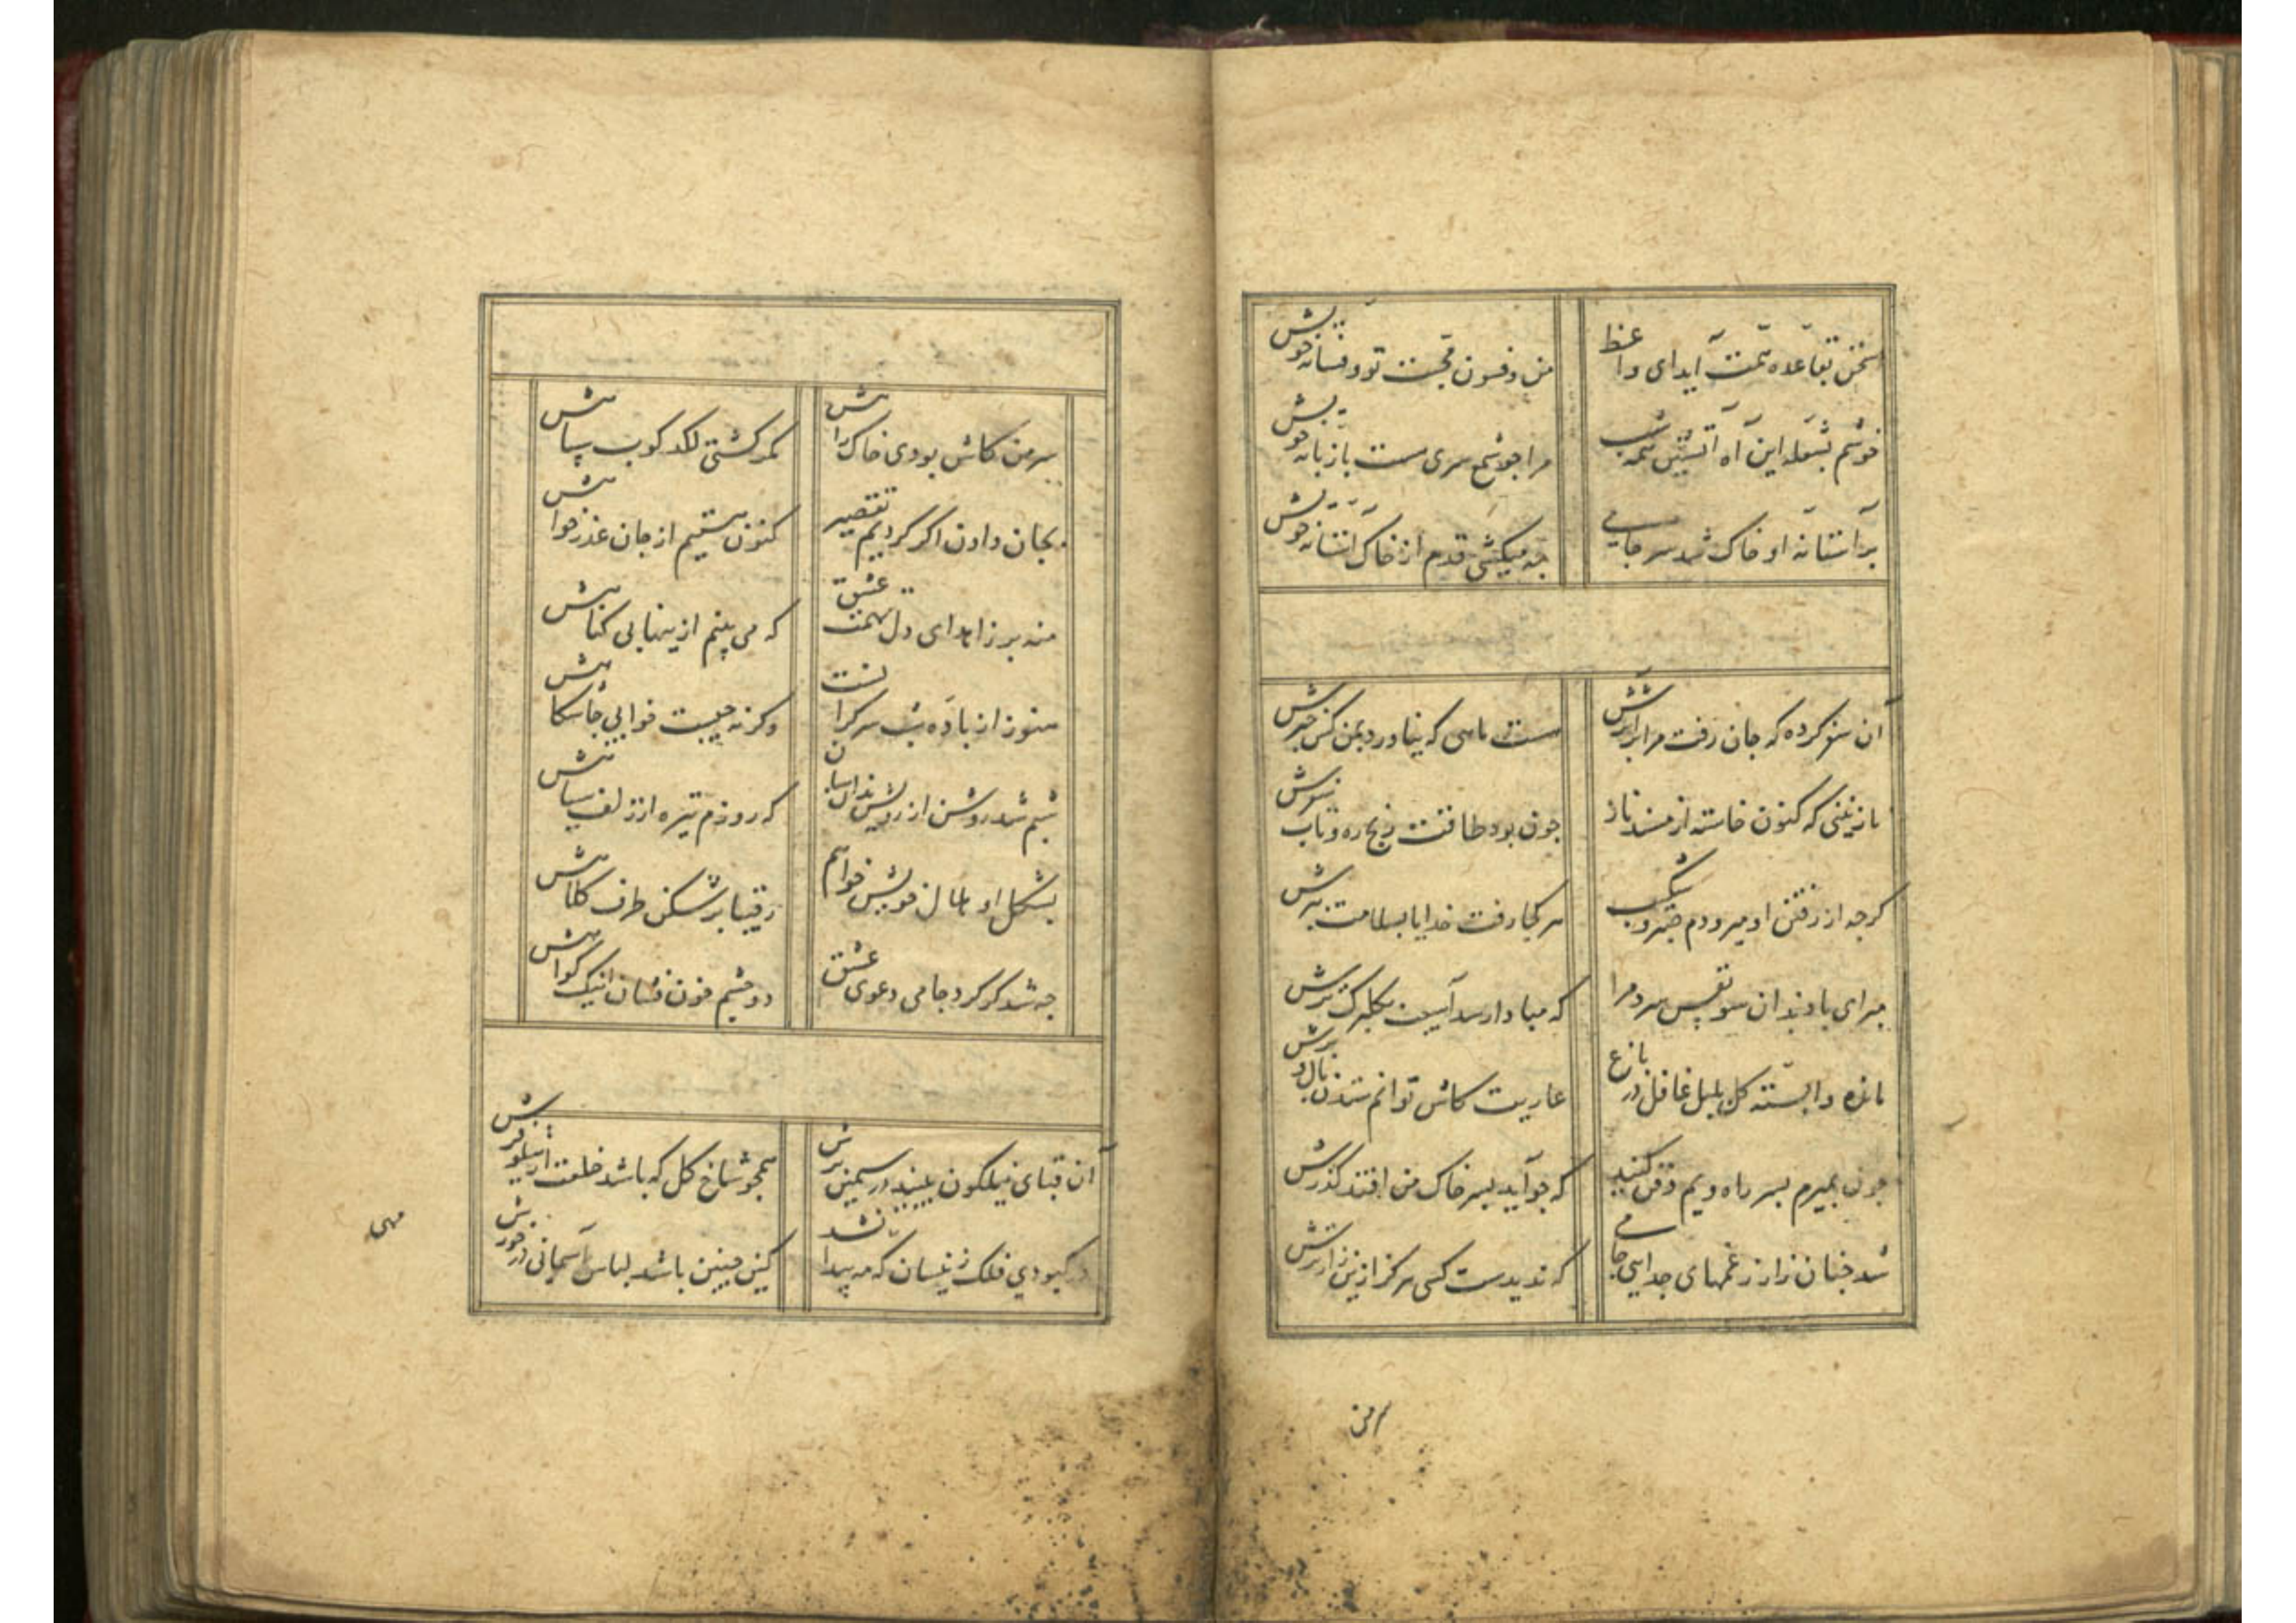 سخن بقاعده همت آید ای واعظ
من و فسون محبت تو و فسانه خویش
خوشم بشعله این آه آتشین همه شب
مرا چو شمع سری هست با زبانه خویش
بر آستانه او خاک شد سر جامی
چه میکشی قدم از خاک آستانه خویش
آن سفر کرده که جان رفت مرا بر اثرش
هست ماهی که نیاورد بمن کس خبرش
نازنینی که کنون خاسته از مسند ناز
چون بود طاقت رنج ره و تاب سفرش
کرچه از رفتن او میرودم صبر و شکیب
هر کجا رفت خدایا بسلامت ببرش
مبر ای باد بدان سو نفس سرد مرا
که مبادا رسد آسیب بکلبرک ترش
مانده وابسته کل بلبل غافل در باغ
عاریت کاش توانم ستدن بال و پرش
چون بمیرم بسر راه ویم دفن کنید
که چو آید بسر خاک من افتد کذرش
شد چنان زار ز غمهای جدایی جامی
که ندیدست کسی هرکز ازین زارترش
سر من
سر من کاش بودی خاک راهش
مکر کشتی لکدکوب سپاهش
بجان دادن اکر کردیم تقصیر
کنون هستیم از جان عذرخواهش
منه بر زاهد ای دل تهمت عشق
که می بینم ازینها بی کناهش
هنوز از باده شب سرکرانست
وکرنه چیست خوابی چاشکاهش
شبم شد روشن از رویش بدان سان
که روزم تیره از زلف سیاهش
بشکل او هلال خویش خواهم
رقیبا برشکن طرف کلاهش
چه شد کر کرد جامی دعوی عشق
دو چشم خون فشان اینک کواهش
آن قبای نیلکون بینید در سیمین برش
همچو شاخ کل که باشد خلعت از نیلوفرش
در کبودی فلک زینسان که مه پیدا نشد
کین چنین باشد لباس آسمانی در خورش